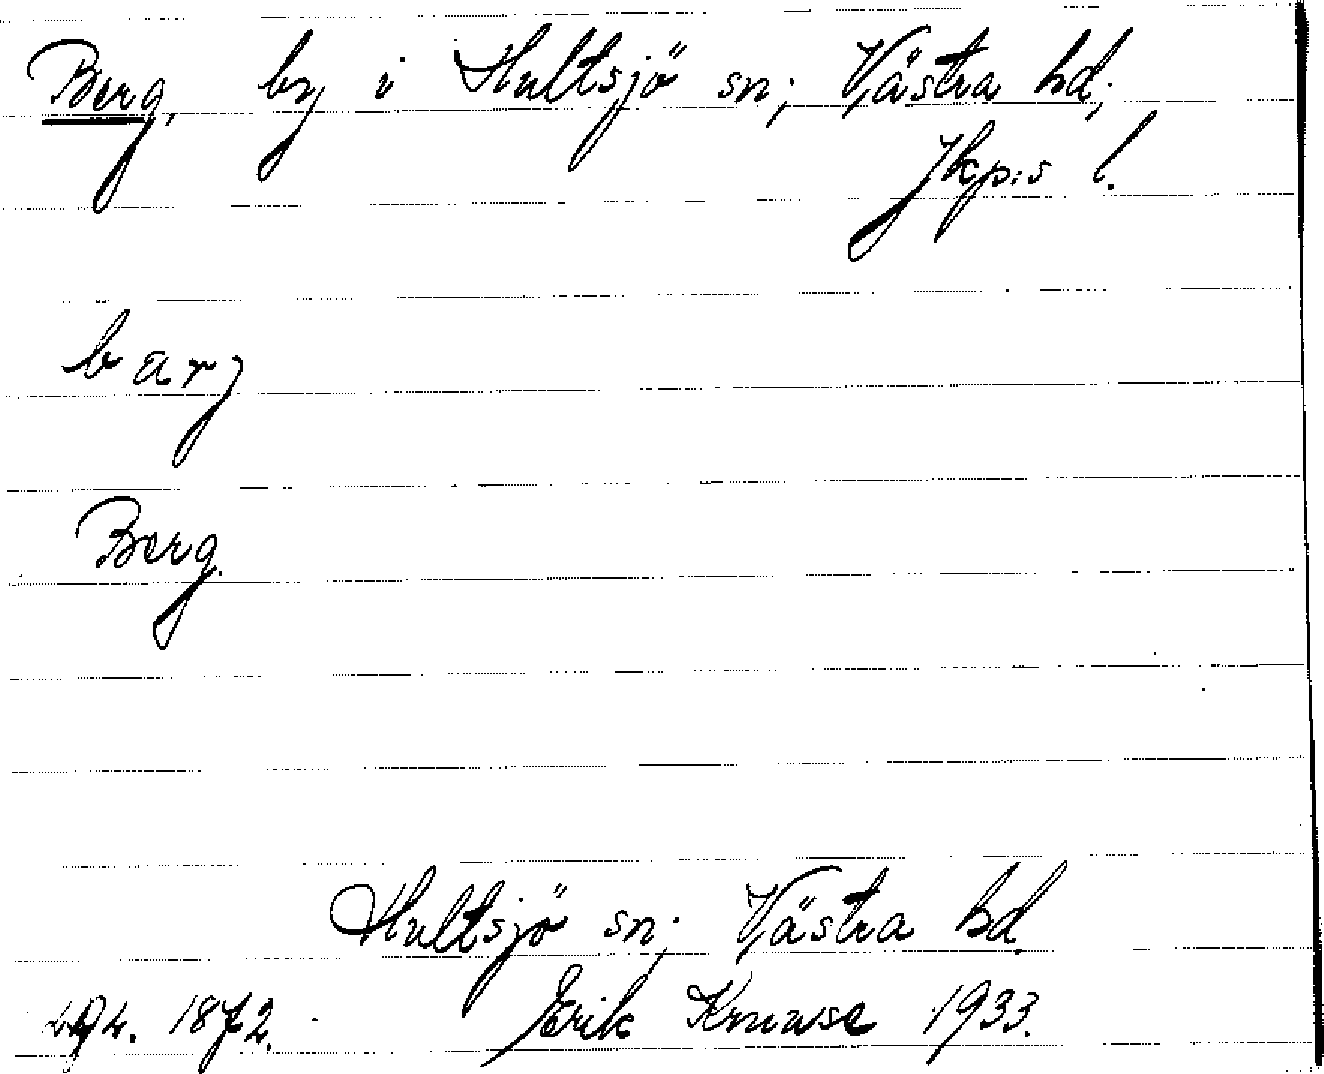 Berg, by i Hultsjö sn; Västra hd;
Jkp:s l.
barj
Berg.
Hultsjö sn; Västra hd.
1872. Erik Kruuse 1933.